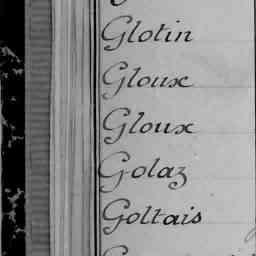 Glotin
Gloux
Gloux
Golaz
Goltais